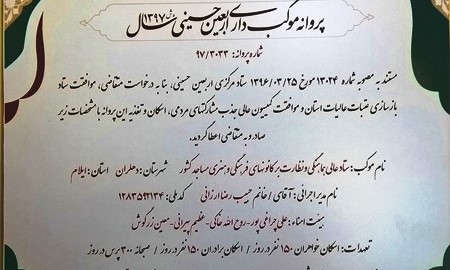 پروانه موکب داری اربعین حسینی سال ۱۳۹۷
شماره پروانه: ۹۷/۳۰۳۳
مستند به مصوبه شماره ۱۳۰۲۴ مورخ ۱۳۹۶/۰۳/۲۵ ستاد مرکزی اربعین حسینی، بنا به درخواست متقاضی، موافقت ستاد
بازسازی عتبات عالیات استان و موافقت کمیسیون عالی جذب مشارکتهای مردمی، اسکان و تغذیه این پروانه با مشخصات زیر
صادر و به متقاضی اعطا گردید.
نام موکب: ستاد عالی هماهنگی و نظارت بر کانونهای فرهنگی و هنری مساجد کشور شهرستان: دهلران استان: ایلام
نام مدیر اجرائی: آقای / خانم حبیب رضا ارزانی کد ملی: ۱۲۸۳۵۹۳۱۳۴
هیئت امناء: علی چراغی پور - روح الله خاکی - عظیم پیرانی - معین زرگوش
تعهدات: اسکان خواهران ۱۵۰ نفر در روز / اسکان برادران ۱۵۰ نفر در روز / صبحانه ۳۰۰ پرس در روز